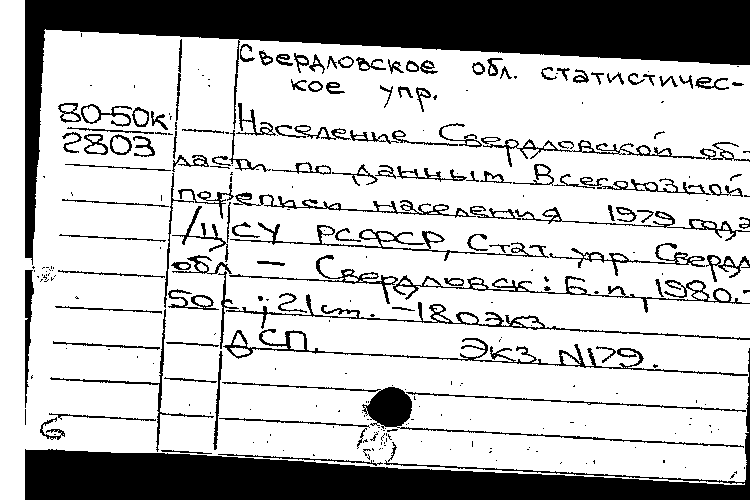 Свердловское обл. статистичес-
кое упр.
80-50к
2803
Население Свердловской об-
ласти по данным Всесоюзной
переписи населения 1979 года
/ЦСУ РСФСР, Стат. упр Свердл
обл — Свердловск: Б.п., 1980.-
50 с.; 21 см. -180 экз.
ДСП. Экз. N179.
6